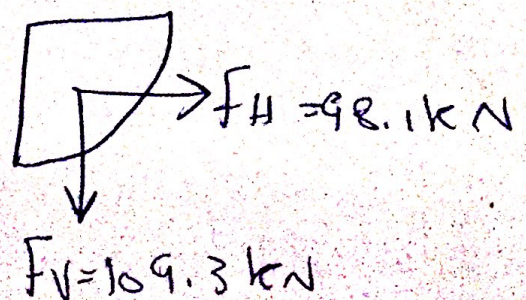 FH=98.1kN
FV=109.3kN